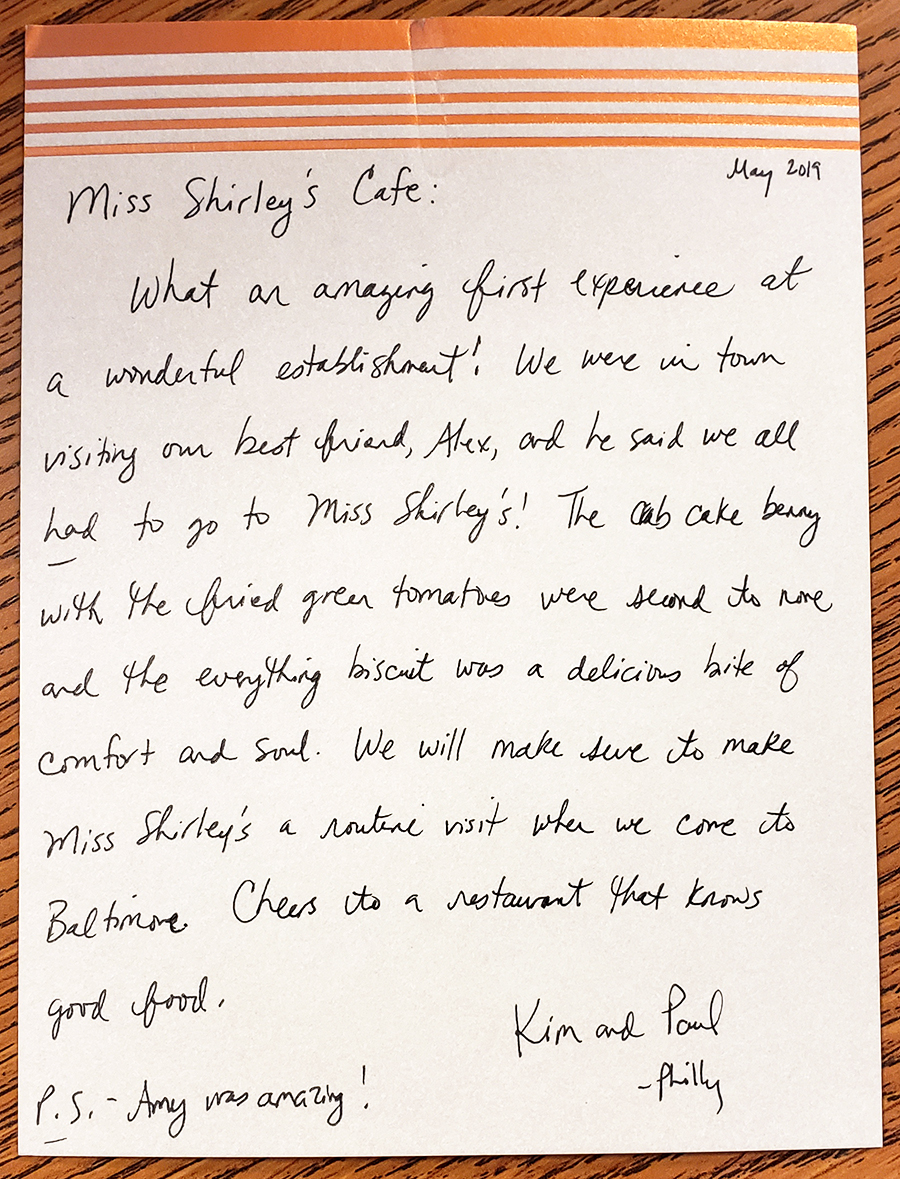 May 2019
Miss Shirley's Cafe:
What an amazing first experience at
a wonderful establishment! We were in town
visiting our best friend, Alex, and he said we all
had to go to Miss Shirley's! The crab cake benny
with the fried green tomatoes were second to none
and the everything biscuit was a delicious bite of
comfort and soul. We will make sure to make
Miss Shirley's a routine visit when we come to
Baltimore. Cheers to a restaurant that knows
good food.
Kim and Paul
-Philly
P.S. - Amy was amazing!